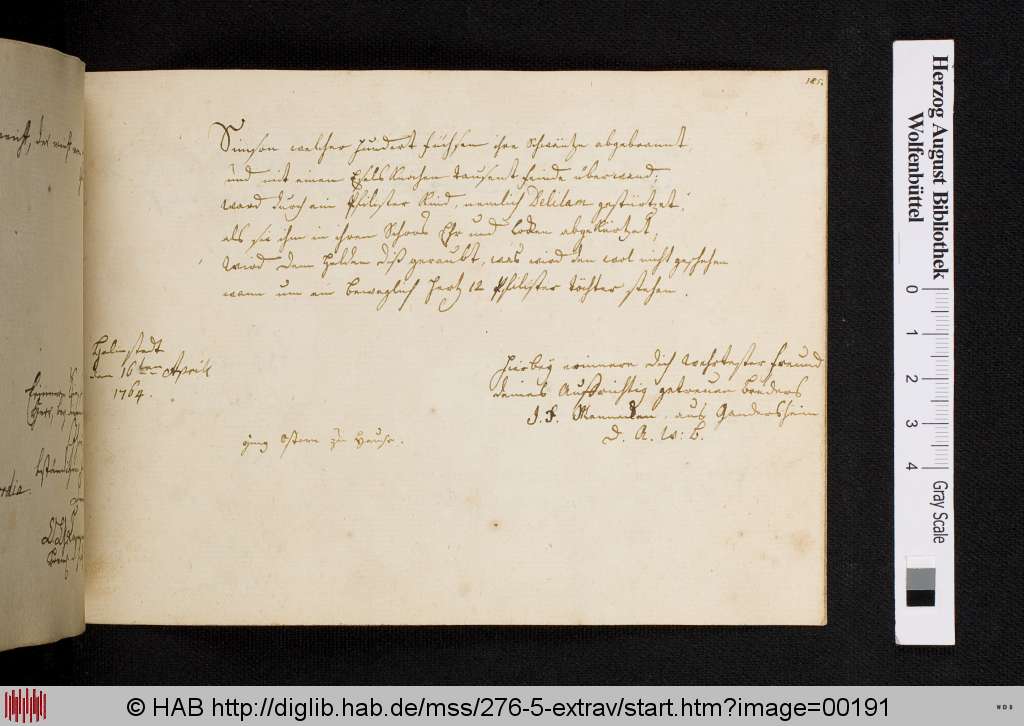 185.
Simson welcher hundert füchsen ihre Schwäntze abgebrannt,
und mit einen Esels Kacken tausent feinde überwand
ward durch ein Philister Kind, nemlich Delilam gestürtzet,
als sie ihm in ihren Schoos Ehr und Locken abgekürtzet,
Wird dem Helden diß geraubt, was wird den wol nicht geschehen
wann um ein beweglich Hertz 12 Philister töchter stehen.
Helmstedt
den 16ten Aprill
1764.
Hierbey erinnere dich Wehrtester freund
deines Aufrichtig getreuen bruders
J. F. aus Gandersheim
d. A. w: b.
ging Ostern zu Hause.
Herzog August Bibliothek
Wolfenbüttel
0
1
2
3
4
Gray Scale
© HAB http://diglib.hab.de/mss/276-5-extrav/start.htm?image=00191